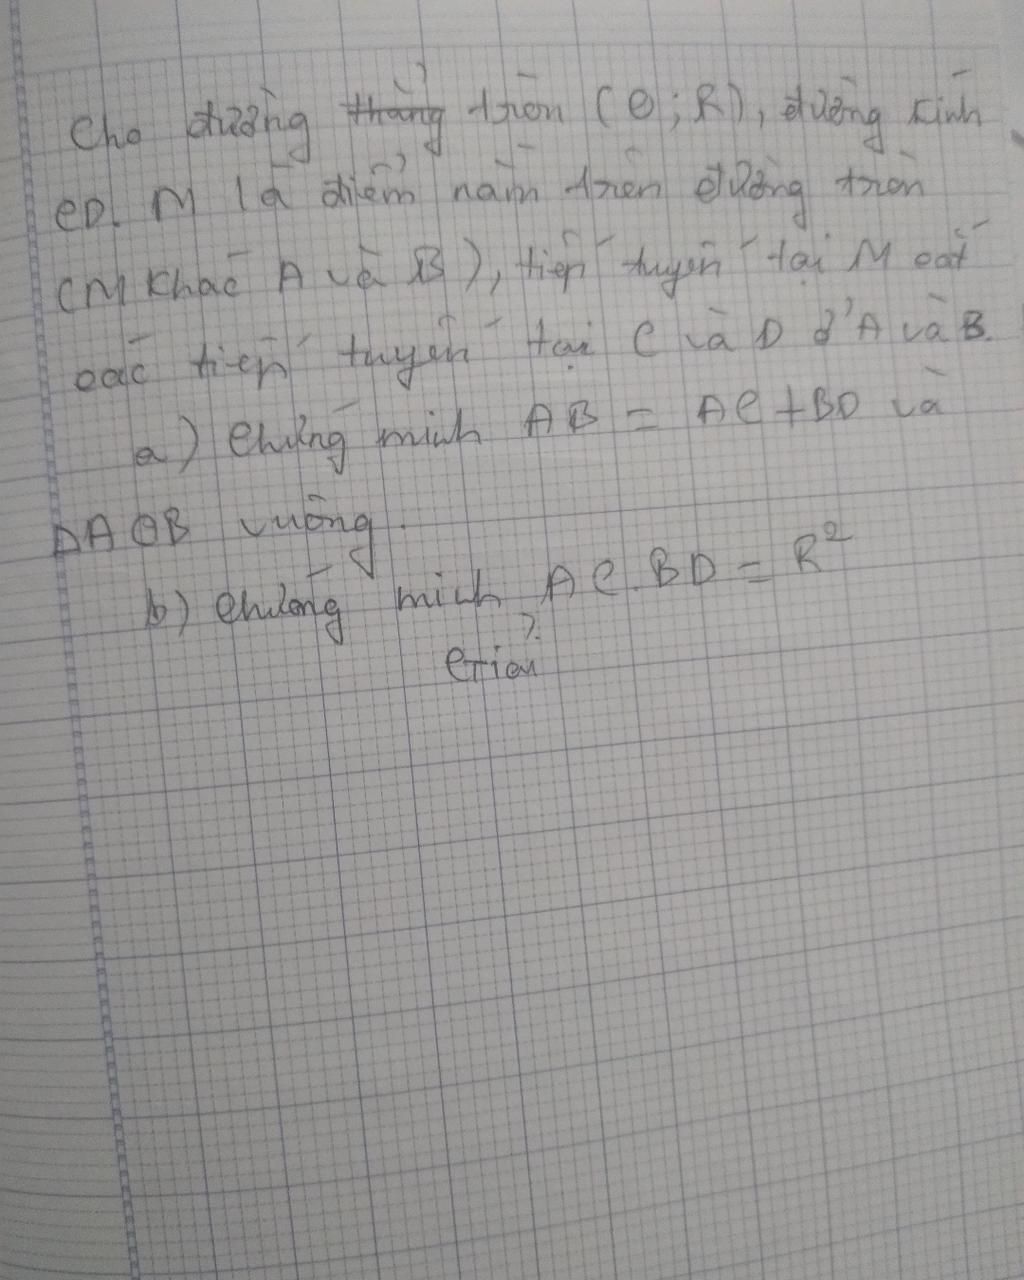 Cho đường thẳng tròn (O; R), đường kính
CD. M là điểm nằm trên đường tròn
(M khác A và B), tiếp tuyến tại M cắt
các tiếp tuyến tại C và D ở A và B.
a) Chứng minh AB = AC + BD và
ΔAOB vuông.
b) Chứng minh AC.BD = R²
Giải